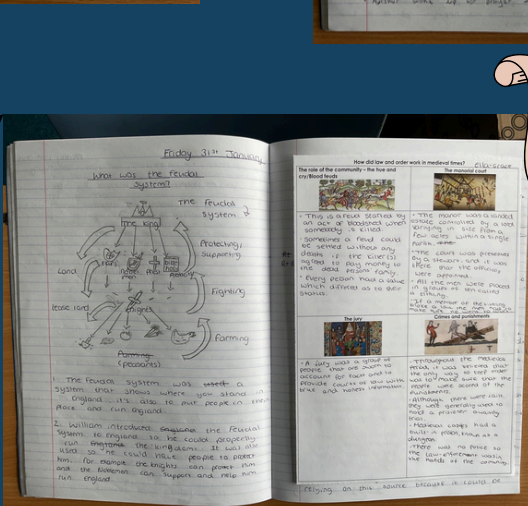 Friday 31st January
What was the feudal
System?
The feudal
system
The King
Protecting,
Supporting
Land
Fighting
lease land
Knights
Farming
Farming
(peasants)
1. The feudal system was used a
system that shows where you stand
in england. it's also to put people in their
place and run england.
2. William introduced England the feudal
system to england so he could properly
run England the kingdom. It was also
used so he could have people to protect
him. for example the knights can protect him
and the noblemen can support and help him
run England
How did law and order work in medieval times?
The role of the community – the hue and
cry/Blood feuds
The manorial court
• This is a feud started by
an act of bloodshed when
somebody is killed.
• Sometimes a feud could
be settled without any
deaths if the killer(s)
agreed to pay money to
the dead persons family.
• Every person had a value
which differed as to their
status.
• The manor was a landed
estate controlled by a lord
ranging in size from a
few acres within a single
parish.
• The court was presided
by a steward, and it was
there that the officials
were appointed.
• All the men were placed
in groups of ten called
a tithing.
The jury
Crimes and punishments
• A jury was a group of
people that are sworn to
account for fact and to
provide court of law with
true and honest information
• Throughout the medieval
period, it was believed that
the only way to keep order
was to make sure that the
people were scared of the
punishments.
• Although there were jails,
they were generally used to
hold a prisoner awaiting
trial.
• Medieval castles had a
built-in prison known as a
dungeon.
• There was no police so
the law-enforcement was in
the hands of the community
relying on this source because it could be